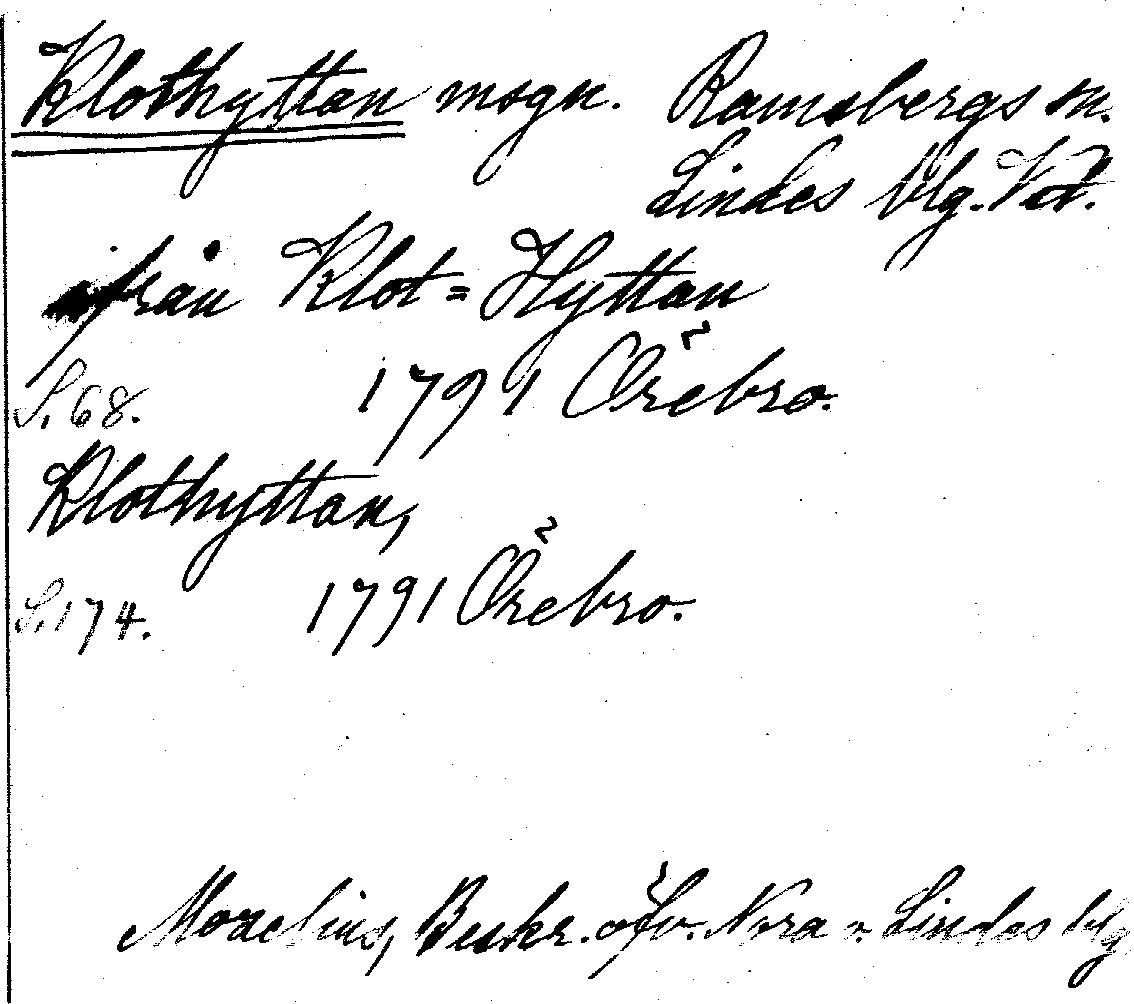 Klothyttan msgn. Ramsbergs sn.
Lindes blg. Vstl.
från Klot=Hyttan
S. 68. 1791 Örebro.
Klothyttan,
S. 174. 1791 Örebro.
Morelius, Beskr. öfv. Nora o. Lindes blg